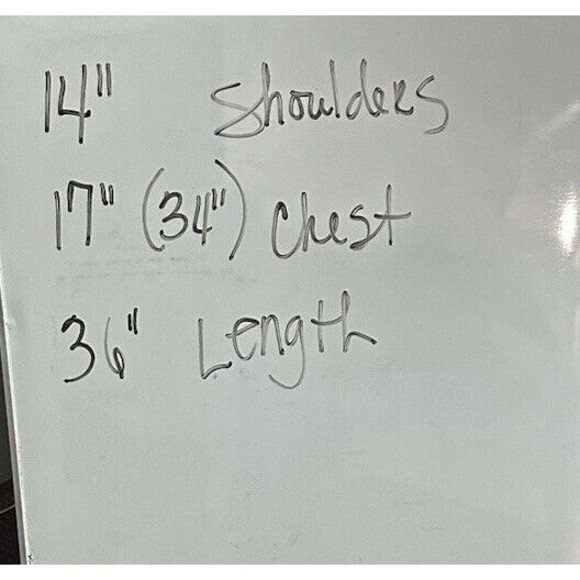 14" Shoulders
17" (34") Chest
36" Length